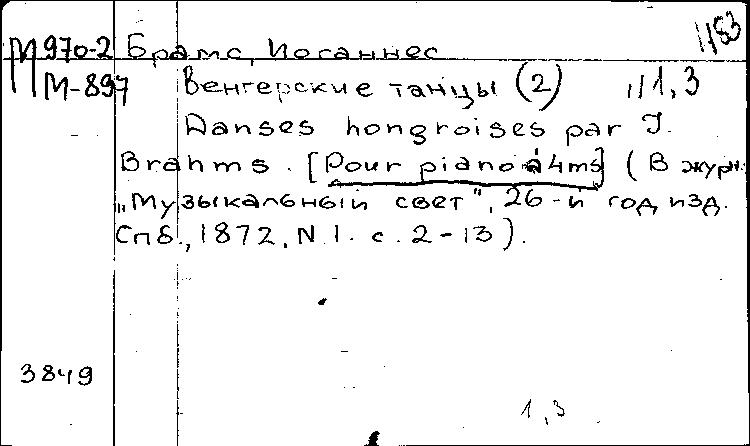 1183
М 970-2 Брамс, Иоганнес
М-897 Венгерские танцы (2) 1,3
Danses hongroises par J.
Brahms. [Pour piano à 4ms] (В журн.
„Музыкальный свет", 26-й год изд.
Спб., 1872, N 1. с. 2-13).
3849
1,3